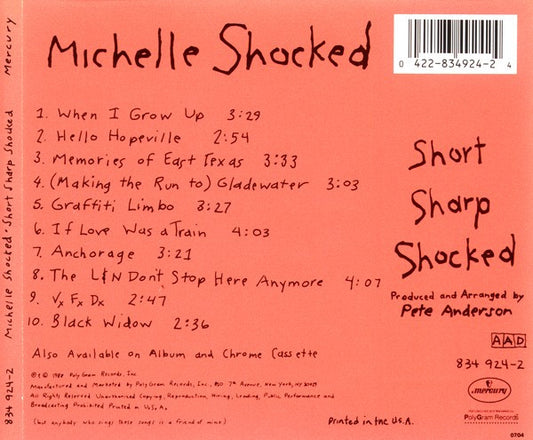 Michelle Shocked
0 422-834924-2 4
1. When I Grow Up 3:29
2. Hello Hopeville 2:54
3. Memories of East Texas 3:33
4. (Making the Run to) Gladewater 3:03
5. Graffiti Limbo 3:27
6. If Love Was a Train 4:03
7. Anchorage 3:21
8. The L&N Don't Stop Here Anymore 4:07
9. Vx Fx Dx 2:47
10. Black Widow 2:36
Short
Sharp
Shocked
Produced and Arranged by
Pete Anderson
AAD
834 924-2
Also Available on Album and Chrome Cassette
℗ & © 1988 PolyGram Records, Inc.
Manufactured and Marketed by PolyGram Records, Inc., 810 7th Avenue, New York, NY 10019
All Rights Reserved Unauthorized Copying, Reproduction, Hiring, Lending, Public Performance and
Broadcasting Prohibited Printed in U.S.A.
(but anybody who sings these songs is a friend of mine)
Printed in the U.S.A.
mercury
PolyGram Records
0704
834 924-2 Michelle Shocked · Short Sharp Shocked Mercury